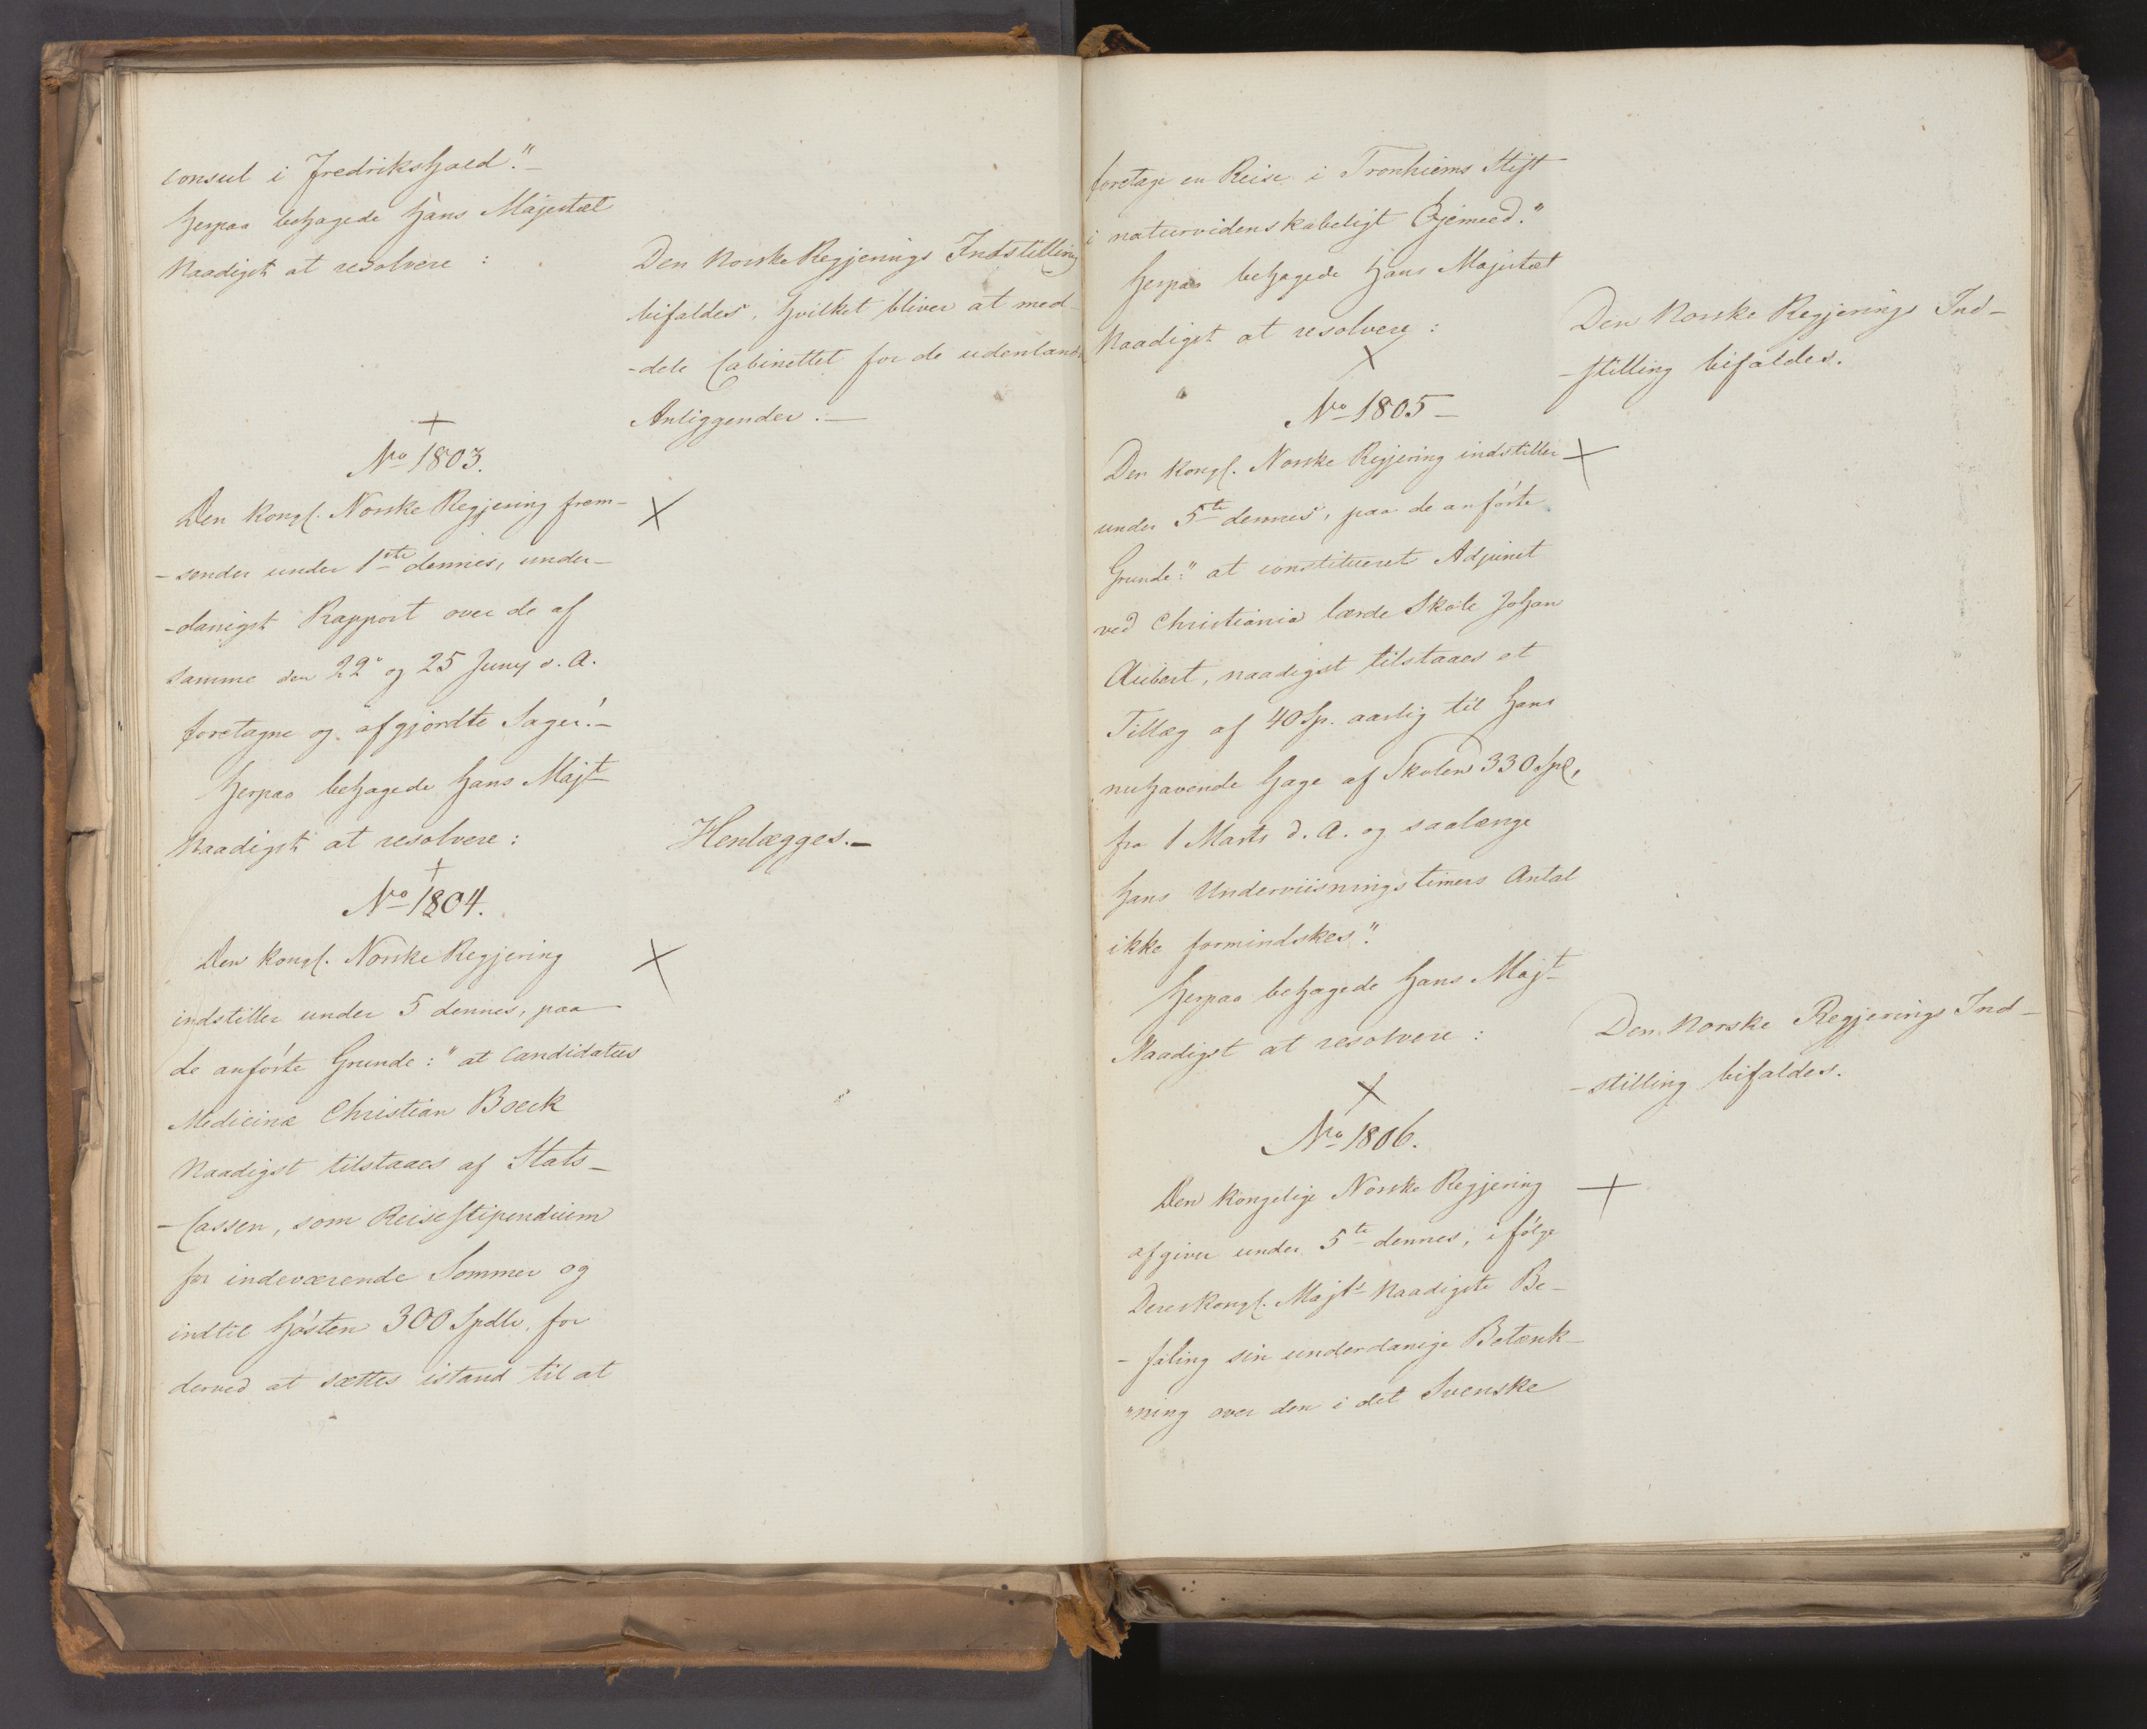 consul i Fredrikshald."-
Herpaa behagede Hans Majestæt
Naadigst at resolvere :
Den Norske Regjerings Indstilling
bifaldes, hvilket bliver at med-
-dele Cabinettet for de udenlands
Anliggender.-
+
No 1803.
Den Kongl. Norske Regjering frem-
-sender under 1ste dennes, under-
-danigst Rapport over de af
samme den 22 og 25 Juny d. A.
foretagne og afgjordte Sager.-
Herpaa behagede Hans Majt
Naadigst at resolvere :
Henlægges.-
+
No 1804.
Den Kongl. Norske Regjering
indstiller under 5 dennes, paa
de anførte Grunde : "at Candidatus
Medicinæ Christian Boeck
Naadigst tilstaaes af Stats-
-Cassen, som Reisestipendium
for indeværende Sommer og
indtil Høsten 300 Spdlr. for
derved at sættes istand til at
foretage en Reise i Tronhiems Stift
i naturvidenskabeligt Øjemeed."
Herpaa behagede Hans Majestæt
Naadigst at resolvere :
Den Norske Regjerings Ind-
-stilling bifaldes.
+
No 1805-
Den Kongl. Norske Regjering indstiller
under 5te dennes, paa de anførte
Grunde : "at constitueret Adjunct
ved Christiania lærde Skole Johan
Aubert, naadigst tilstaaes et
Tillæg af 40 Sp. aarlig til Hans
nuhavende Gage af Skolen 330 Spd,
fra 1 Marts d. A. og saalænge
Hans Underviisningstimers Antal
ikke formindskes".
Herpaa behagede Hans Majt
Naadigst at resolvere :
Den Norske Regjerings Ind-
-stilling bifaldes.
+
No 1806.
Den Kongelige Norske Regjering
afgiver under 5te dennes, ifølge
Deres Kongl. Majts Naadigste Be-
-faling sin underdanige Betænk-
"ning over den i det Svenske